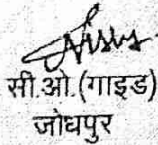 सी.ओ.(गाइड)
जोधपुर